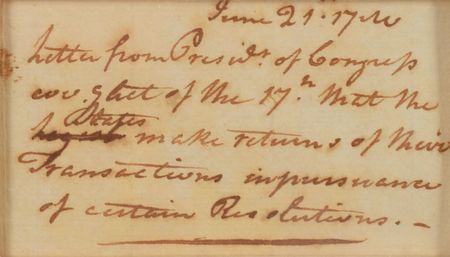 June 21. 17
Letter from Presidt. of Congress
of the 17th. that the
States
make returns of their
Transactions in pursuance
of certain Resolutions. –